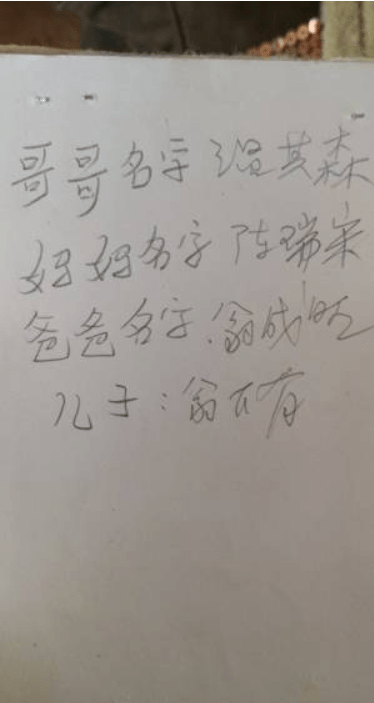 哥哥名字温其森
妈妈名字陈瑞宋
爸爸名字.翁成旺
儿子:翁不有